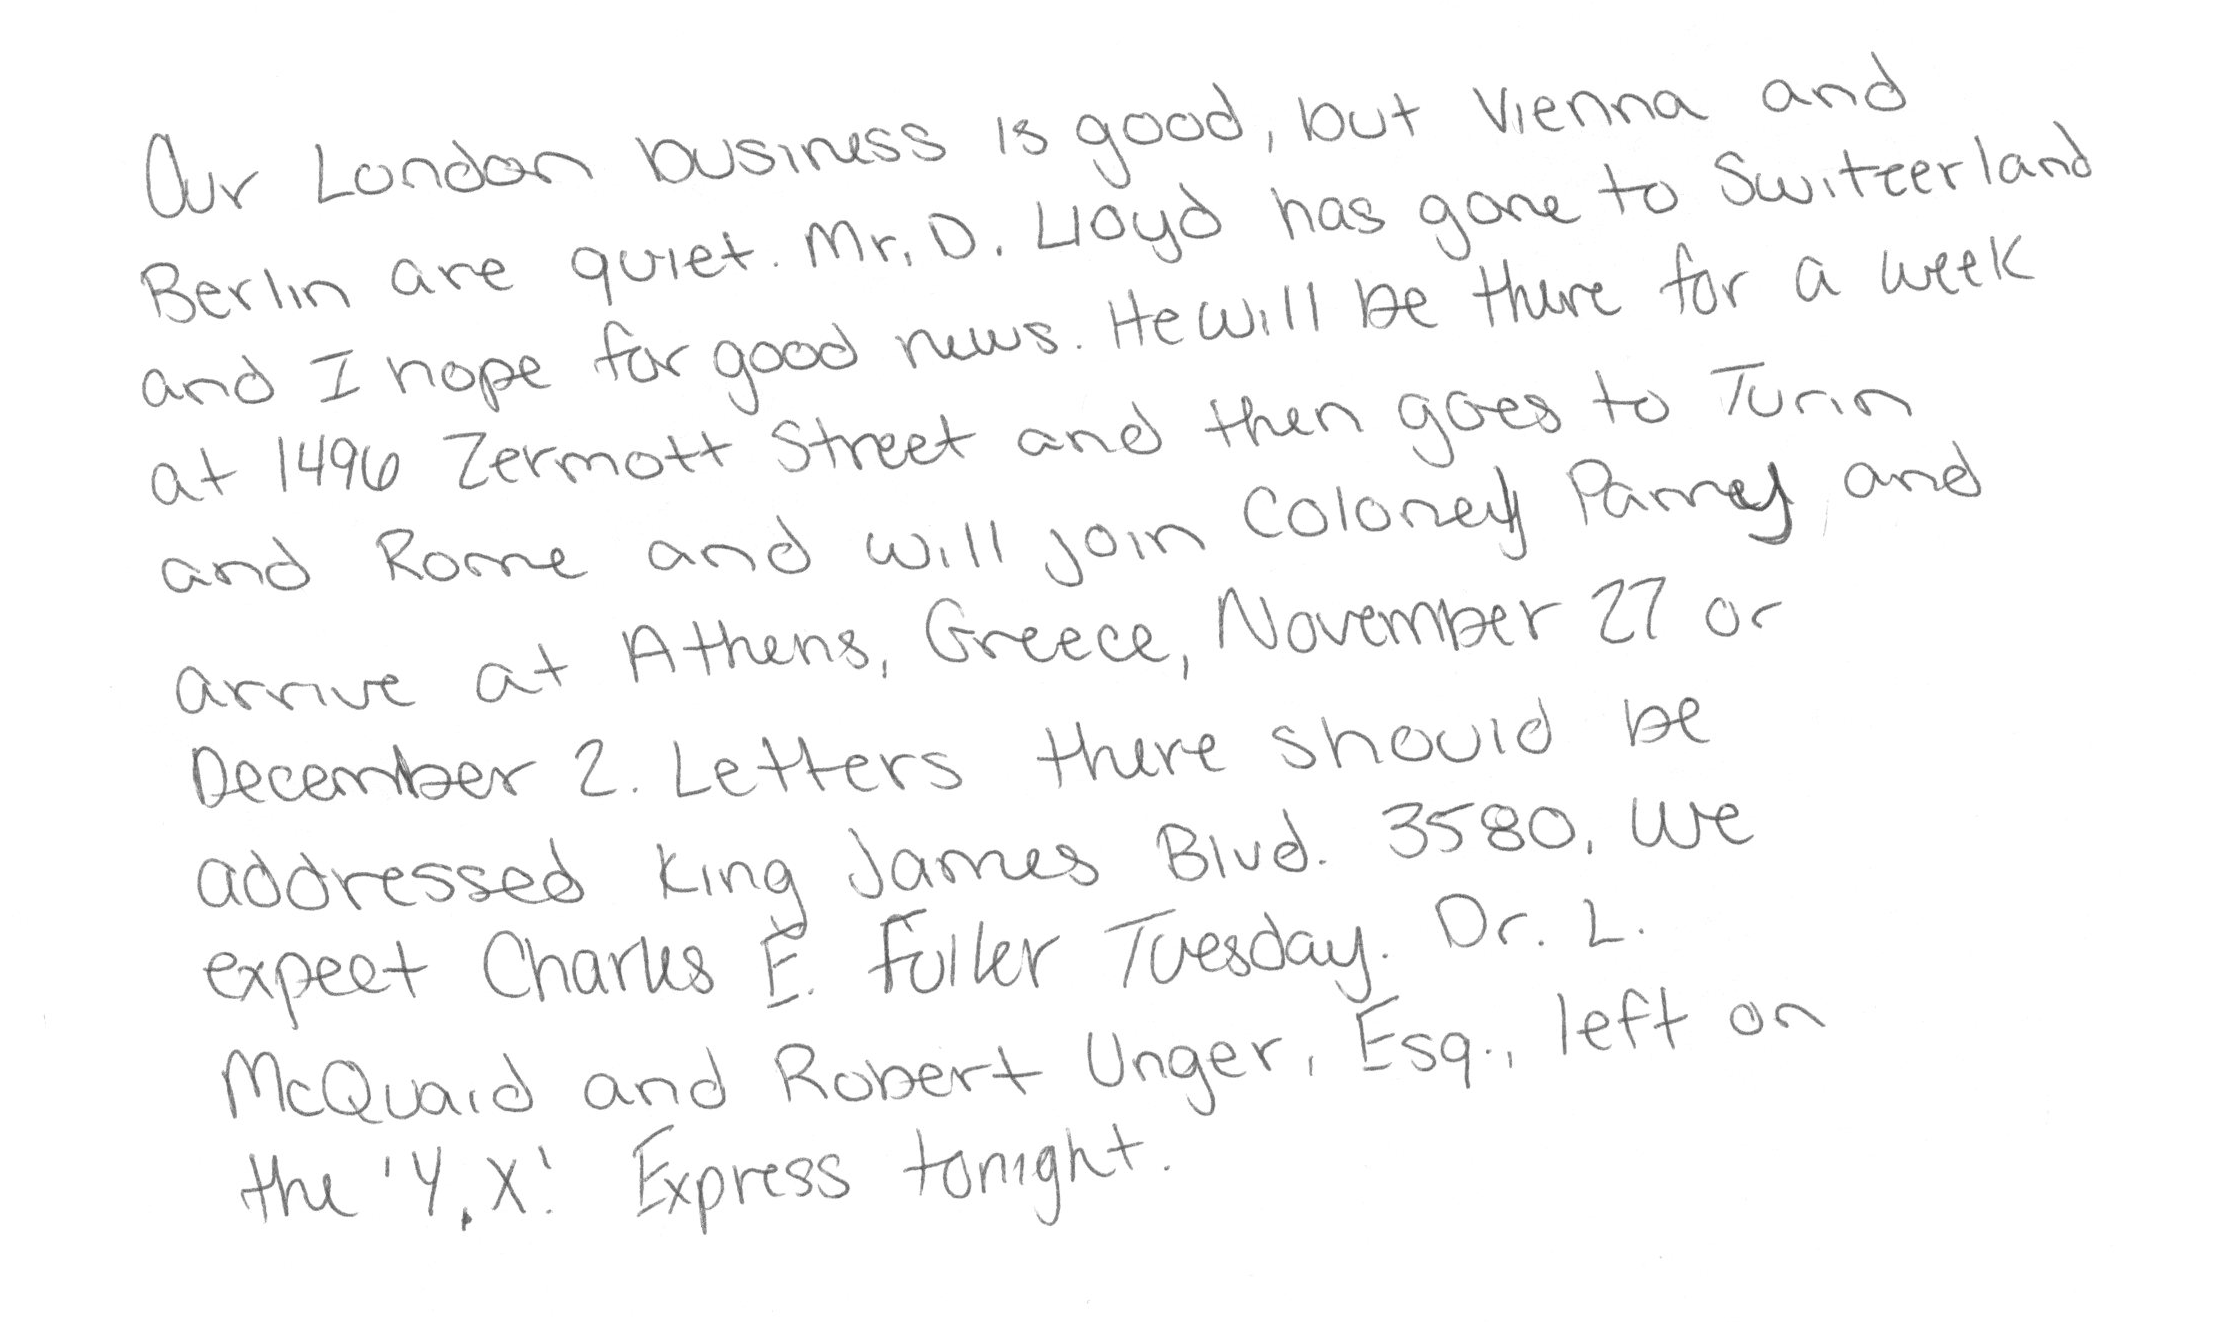 Our London business is good, but Vienna and
Berlin are quiet. Mr. D. Lloyd has gone to Switzerland
and I hope for good news. He will be there for a week
at 1496 Zermott Street and then goes to Turin
and Rome and will join Colonel Parry and
arrive at Athens, Greece, November 27 or
December 2. Letters there should be
addressed King James Blvd. 3580. We
expect Charles E. Fuller Tuesday. Dr. L.
McQuaid and Robert Unger, Esq., left on
the 'Y.X.' Express tonight.